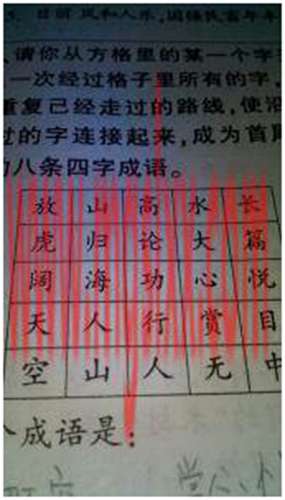 目前风和人乐,国强民富年年
请你从方格里的某一个字
一次经过格子里所有的字,
重复已经走过的路线,使沿
过的字连接起来,成为首尾
八条四字成语。
放 山 高 水 长
虎 归 论 大 篇
阔 海 功 心 悦
天 人 行 赏 目
空 山 人 无 中
个成语是: